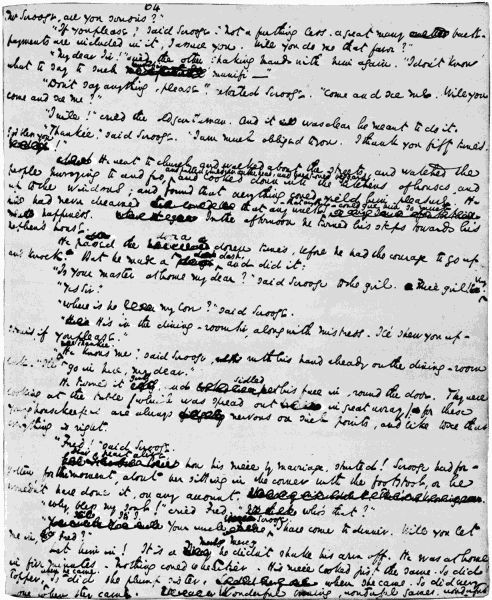 64
Mr Scrooge, are you serious?"
"If you please," said Scrooge. "Not a farthing less. A great many back-
payments are included in it, I assure you. Will you do me that favor?"
"My dear Sir," said the other, shaking hands with him again. "I don't know
what to say to such munifi—"
"Don't say anything, please," retorted Scrooge. "Come and see me. Will you
come and see me?"
"I will!" cried the old gentleman. And it was clear he meant to do it.
"Thankee," said Scrooge. "I am much obliged to you. I thank you fifty times.
Bless you!"
He went to church, and walked about the streets, and watched the
people hurrying to and fro, and patted children on the head, and questioned beggars, and looked down into the kitchens of houses, and
up to the windows; and found that everything could yield him pleasure. He
had never dreamed that any walk— that anything— could give him so much
happiness. In the afternoon he turned his steps towards his
nephew's house.
He passed the door a dozen times, before he had the courage to go up
and knock. But he made a dash, and did it:
"Is your master at home my dear?" said Scrooge to the girl. Nice girl! Very.
"Yes Sir."
"Where is he my love?" said Scrooge.
"He's in the dining-room Sir, along with mistress. I'll show you up-
stairs if you please."
"Thankee. He knows me," said Scrooge, with his hand already on the dining-room
lock. "I'll go in here, my dear."
He turned it gently, and sidled his face in, round the door. They were
looking at the table (which was spread out in great array) for these
young housekeepers are always nervous on such points, and like to see that
everything is right.
"Fred!" said Scrooge.
Dear heart alive, how his niece by marriage, started! Scrooge had for-
gotten for the moment, about her sitting in the corner with the footstool, or he
wouldn't have done it, on any account.
"Why bless my soul!" cried Fred, "who's that?"
"It's I. Your uncle Scrooge. I have come to dinner. Will you let
me in, Fred?"
Let him in! It is a mercy he didn't shake his arm off. He was at home
in five minutes. Nothing could be heartier. His niece looked just the same. So did
Topper, when he came. So did the plump sister, when she came. So did every
one when they came. Wonderful games, wonderful